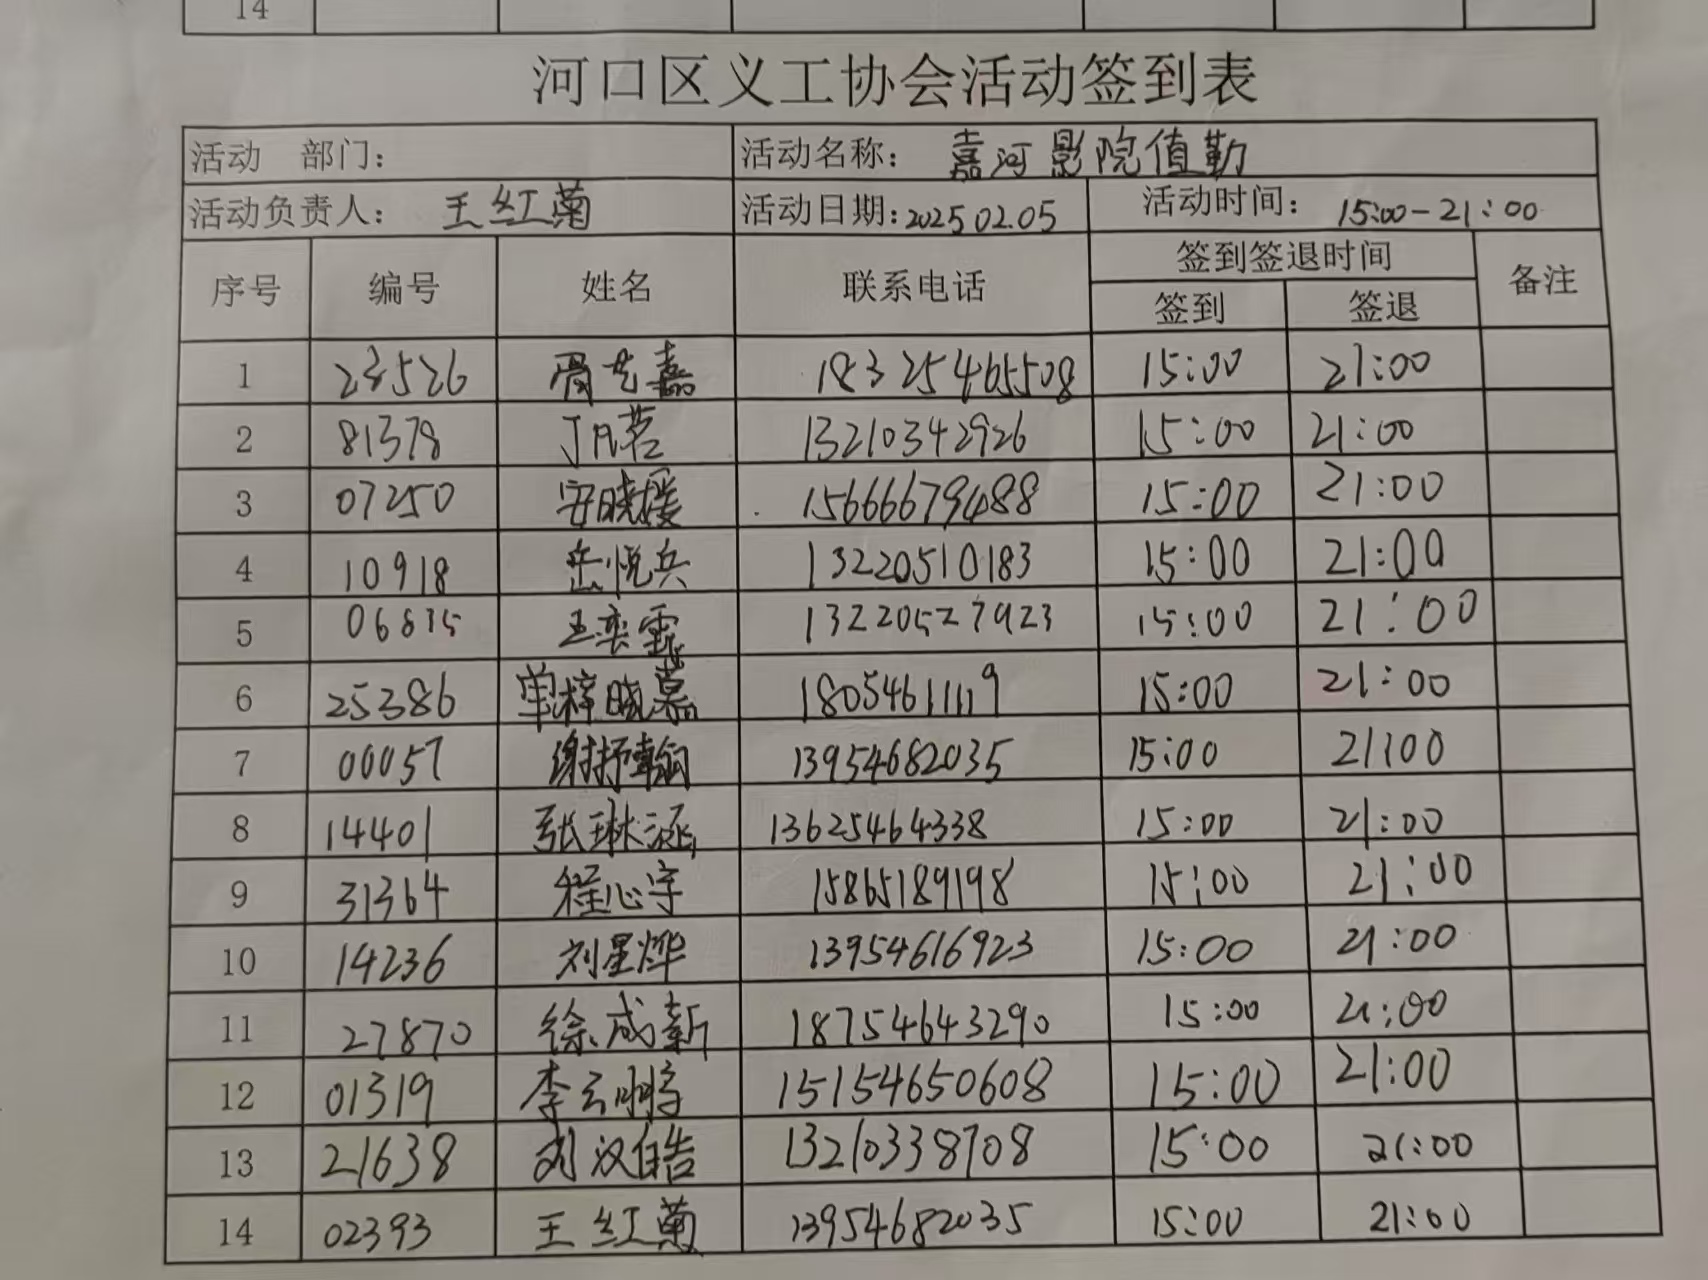 14
河口区义工协会活动签到表
活动 部门: 活动名称: 嘉河影院值勤
活动负责人: 王红菊 活动日期: 2025.02.05 活动时间: 15:00-21:00
序号 编号 姓名 联系电话 签到签退时间 备注
签到 签退
1 23526 18325465508 15:00 21:00
2 81378 丁凡茗 13210342926 15:00 21:00
3 07250 安晓媛 15666679488 15:00 21:00
4 10918 岳悦兵 13220510183 15:00 21:00
5 06835 王奕霏 13220527923 15:00 21:00
6 25386 单梓晓慕 18054611119 15:00 21:00
7 00057 谢抒翰 13954682035 15:00 21:00
8 14401 张琳涵 13625464338 15:00 21:00
9 31364 程心宇 15865189198 15:00 21:00
10 14236 刘星烨 13954616923 15:00 21:00
11 27870 徐成新 18754643290 15:00 21:00
12 01319 李云鹏 15154650608 15:00 21:00
13 21638 刘汉皓 13210338708 15:00 21:00
14 02393 王红菊 13954682035 15:00 21:00